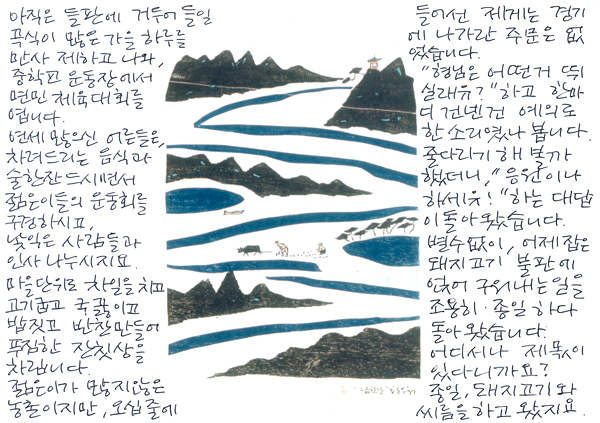 아직은 들판에 거두어 들일
곡식이 많은 가을 하루를
만사 제하고 나와,
중학교 운동장에서
면민 체육대회를
엽니다.
연세 많으신 어른들은,
차려드리는 음식과
술한잔 드시면서
젊은이들의 운동회를
구경하시고,
낯익은 사람들과
인사 나누시지요.
마을단위로 차일을 치고
고기굽고 국끓이고
밥짓고 반찬만들어
푸짐한 잔칫상을
차립니다.
젊은이가 많지않은
농촌이지만, 오십 줄에
들어선 제게는 경기
에 나가란 주문은 없
었습니다.
"형님은 어떤거 뛰
실래유?"하고 한마
디 건넨건 예의로
한 소리였나 봅니다.
줄다리기 해 볼까
했더니, "응원이나
하세유!"하는 대답
이 돌아 왔습니다.
별수없이, 어제 잡은
돼지고기 불판에
얹어 구워내는 일을
조용히·종일 하다
돌아 왔습니다.
어디서나 제 몫이
있다니까요?
종일, 돼지고기와
씨름을 하고 왔지요.